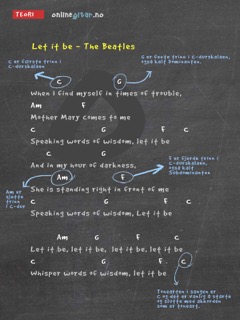 TEORI onlinegitar.no
Let it be - The Beatles
C er første trinn i C-durskalaen
G er femte trinn i C-durskalaen, også kalt Dominanten.
C G
When I find myself in times of trouble,
Am F
Mother Mary comes to me
C G F C
Speaking words of wisdom, let it be
C G
And in my hour of darkness,
F er fjerde trinn i C-durskalaen, også kalt Subdominanten
Am F
Am er sjette trinn i C-dur
She is standing right in front of me
C G F C
Speaking words of wisdom, Let it be
Am G F C
Let it be, let it be, let it be, let it be
C G F C
Whisper words of wisdom, let it be
Tonearten i sangen er C og det er vanlig å starte og slutte med akkorden som er toneart.